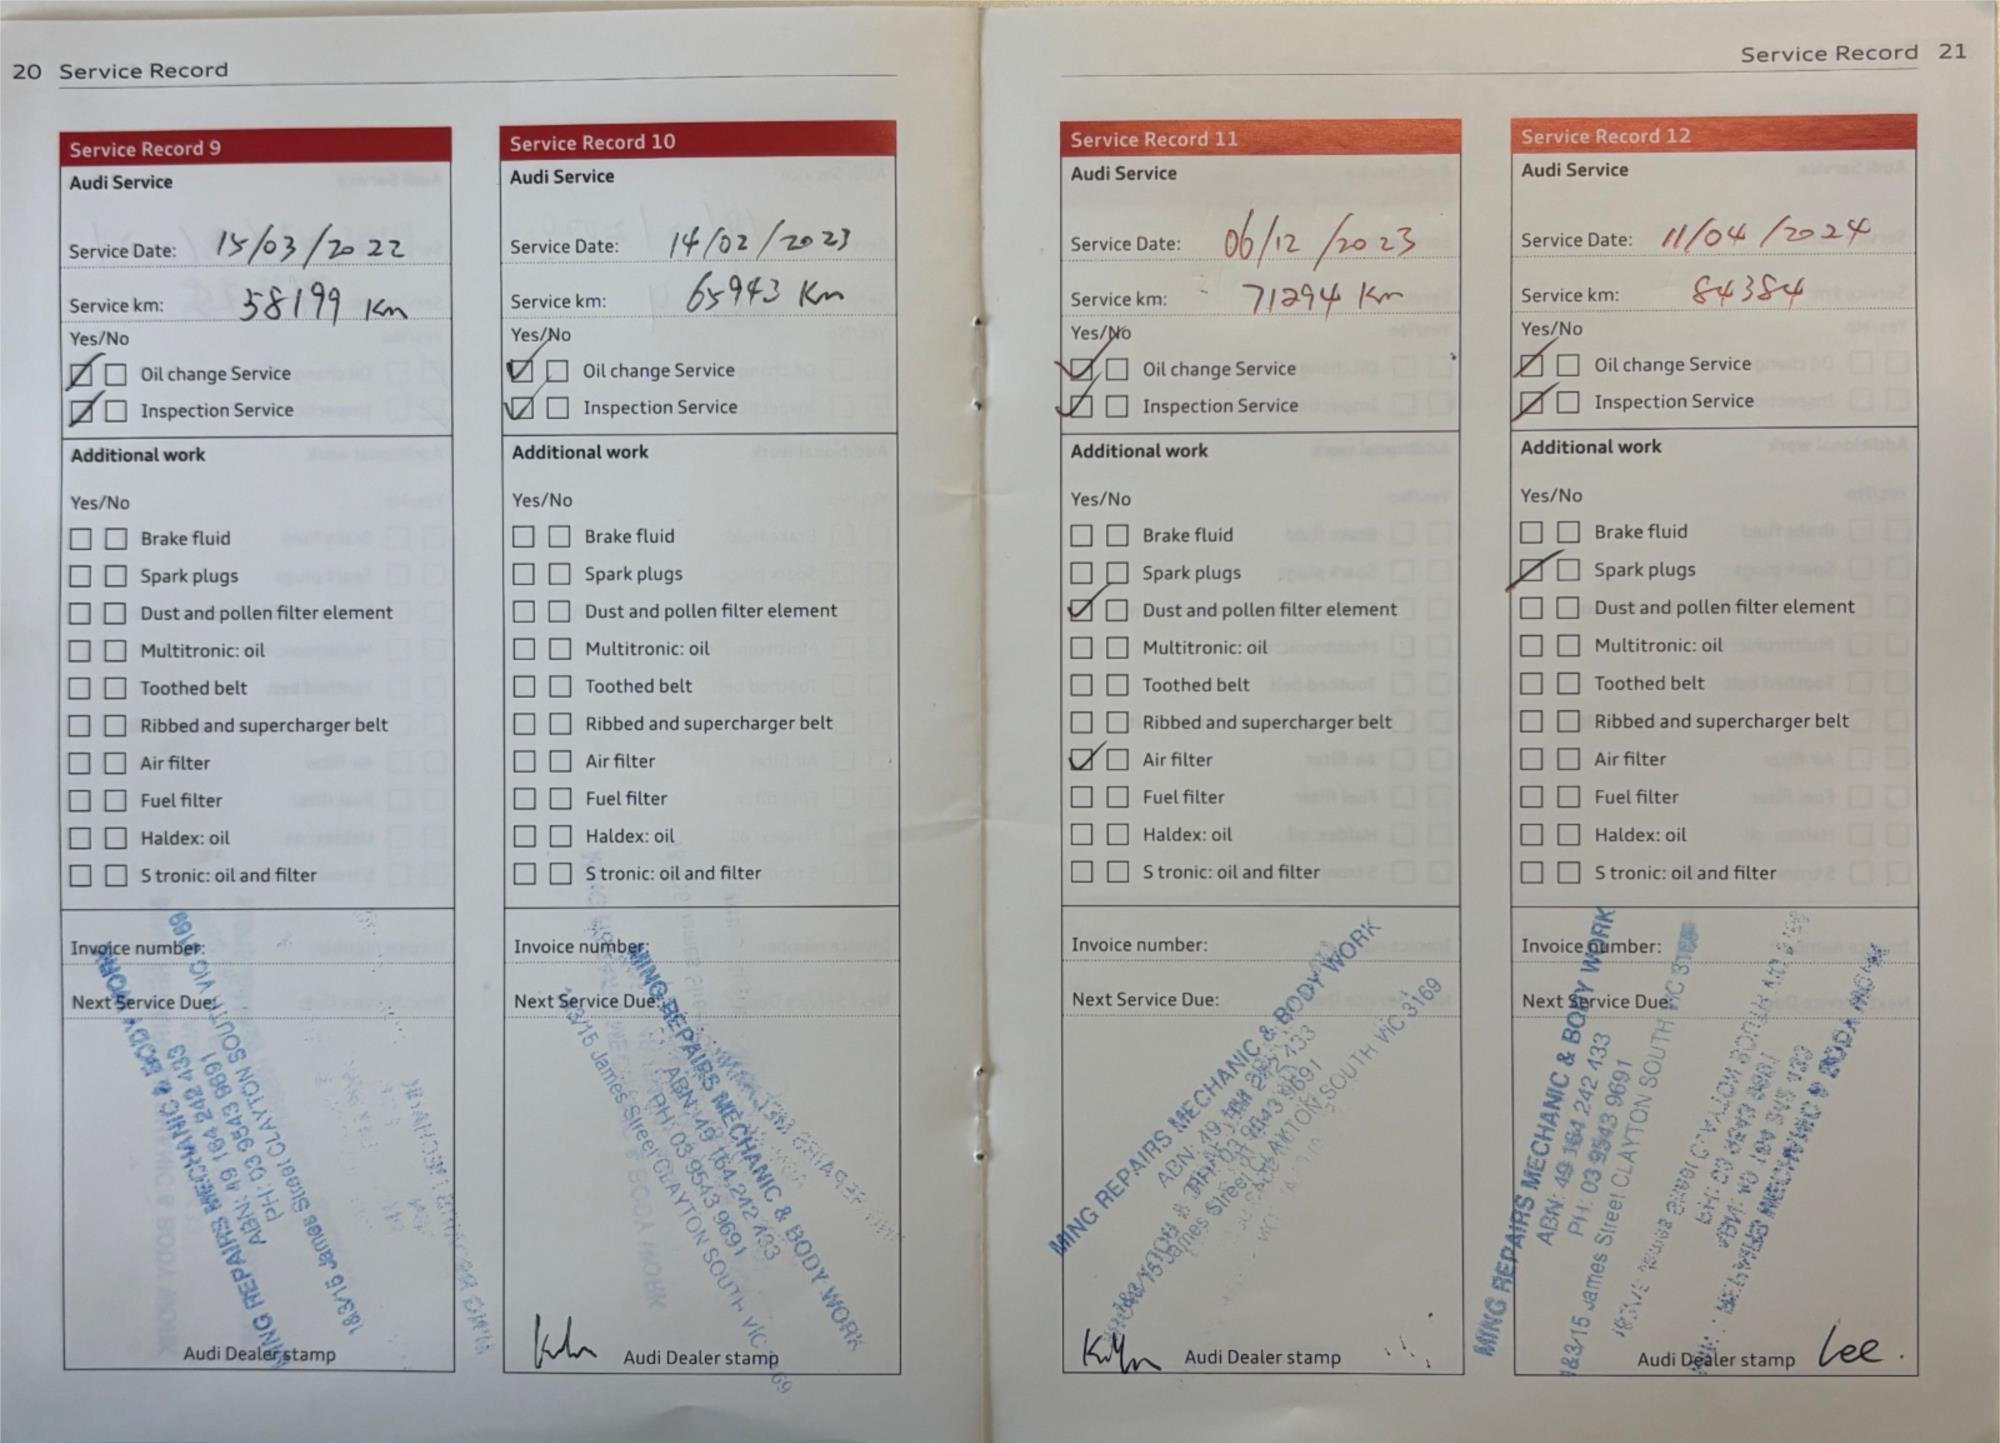 20 Service Record
Service Record 9
Audi Service
Service Date: 15/03/2022
Service km: 58199 Km
Yes/No
Oil change Service
Inspection Service
Additional work
Yes/No
Brake fluid
Spark plugs
Dust and pollen filter element
Multitronic: oil
Toothed belt
Ribbed and supercharger belt
Air filter
Fuel filter
Haldex: oil
S tronic: oil and filter
Invoice number:
Next Service Due:
MING REPAIRS MECHANIC & BODY WORK
ABN: 49 164 242 433
PH: 03 9543 9691
1&3/15 James Street CLAYTON SOUTH VIC 3169
Audi Dealer stamp
Service Record 10
Audi Service
Service Date: 14/02/2023
Service km: 65943 Km
Yes/No
Oil change Service
Inspection Service
Additional work
Yes/No
Brake fluid
Spark plugs
Dust and pollen filter element
Multitronic: oil
Toothed belt
Ribbed and supercharger belt
Air filter
Fuel filter
Haldex: oil
S tronic: oil and filter
Invoice number:
Next Service Due:
MING REPAIRS MECHANIC & BODY WORK
ABN: 49 164 242 433
PH: 03 9543 9691
1&3/15 James Street CLAYTON SOUTH VIC 3169
Audi Dealer stamp
Service Record 21
Service Record 11
Audi Service
Service Date: 06/12/2023
Service km: 71294 Km
Yes/No
Oil change Service
Inspection Service
Additional work
Yes/No
Brake fluid
Spark plugs
Dust and pollen filter element
Multitronic: oil
Toothed belt
Ribbed and supercharger belt
Air filter
Fuel filter
Haldex: oil
S tronic: oil and filter
Invoice number:
Next Service Due:
MING REPAIRS MECHANIC & BODY WORK
ABN: 49 164 242 433
PH: 03 9543 9691
1&3/15 James Street CLAYTON SOUTH VIC 3169
Audi Dealer stamp
Service Record 12
Audi Service
Service Date: 11/04/2024
Service km: 84384
Yes/No
Oil change Service
Inspection Service
Additional work
Yes/No
Brake fluid
Spark plugs
Dust and pollen filter element
Multitronic: oil
Toothed belt
Ribbed and supercharger belt
Air filter
Fuel filter
Haldex: oil
S tronic: oil and filter
Invoice number:
Next Service Due:
MING REPAIRS MECHANIC & BODY WORK
ABN: 49 164 242 433
PH: 03 9543 9691
1&3/15 James Street CLAYTON SOUTH VIC 3169
Audi Dealer stamp Lee.